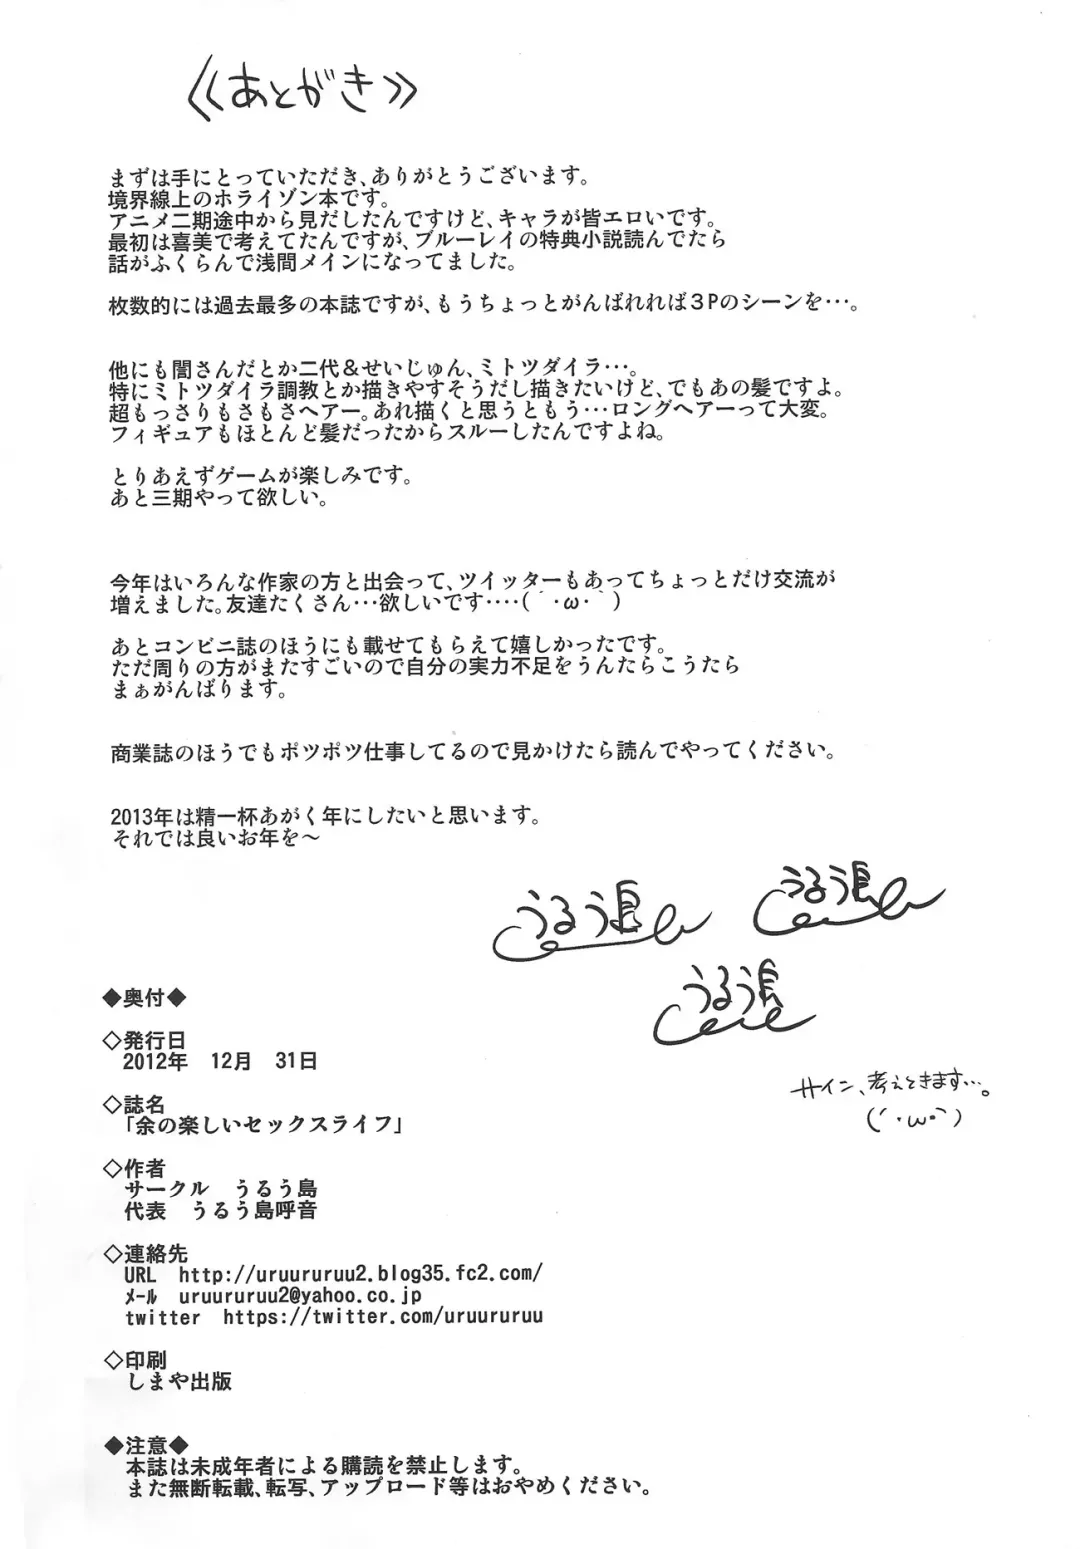 《あとがき》
まずは手にとっていただき、ありがとうございます。
境界線上のホライゾン本です。
アニメ二期途中から見だしたんですけど、キャラが皆エロいです。
最初は喜美で考えてたんですが、ブルーレイの特典小説読んでたら
話がふくらんで浅間メインになってました。
枚数的には過去最多の本誌ですが、もうちょっとがんばれれば３Pのシーンを･･･。
他にも闇さんだとか二代＆せいじゅん、ミトツダイラ･･･。
特にミトツダイラ調教とか描きやすそうだし描きたいけど、でもあの髪ですよ。
超もっさりもさもさヘアー。あれ描くと思うともう･･･ロングヘアーって大変。
フィギュアもほとんど髪だったからスルーしたんですよね。
とりあえずゲームが楽しみです。
あと三期やって欲しい。
今年はいろんな作家の方と出会って、ツイッターもあってちょっとだけ交流が
増えました。友達たくさん･･･欲しいです････(´･ω･｀)
あとコンビニ誌のほうにも載せてもらえて嬉しかったです。
ただ周りの方がまたすごいので自分の実力不足をうんたらこうたら
まぁがんばります。
商業誌のほうでもポツポツ仕事してるので見かけたら読んでやってください。
2013年は精一杯あがく年にしたいと思います。
それでは良いお年を～
うるう島
うるう島
うるう島
サイン、考えときます…。
(´･ω･｀)
◆奥付◆
◇発行日
2012年　12月　31日
◇誌名
「余の楽しいセックスライフ」
◇作者
サークル　うるう島
代表　うるう島呼音
◇連絡先
URL　http://uruururuu2.blog35.fc2.com/
ﾒｰﾙ　uruururuu2@yahoo.co.jp
twitter　https://twitter.com/uruururuu
◇印刷
しまや出版
◆注意◆
本誌は未成年者による購読を禁止します。
また無断転載、転写、アップロード等はおやめください。